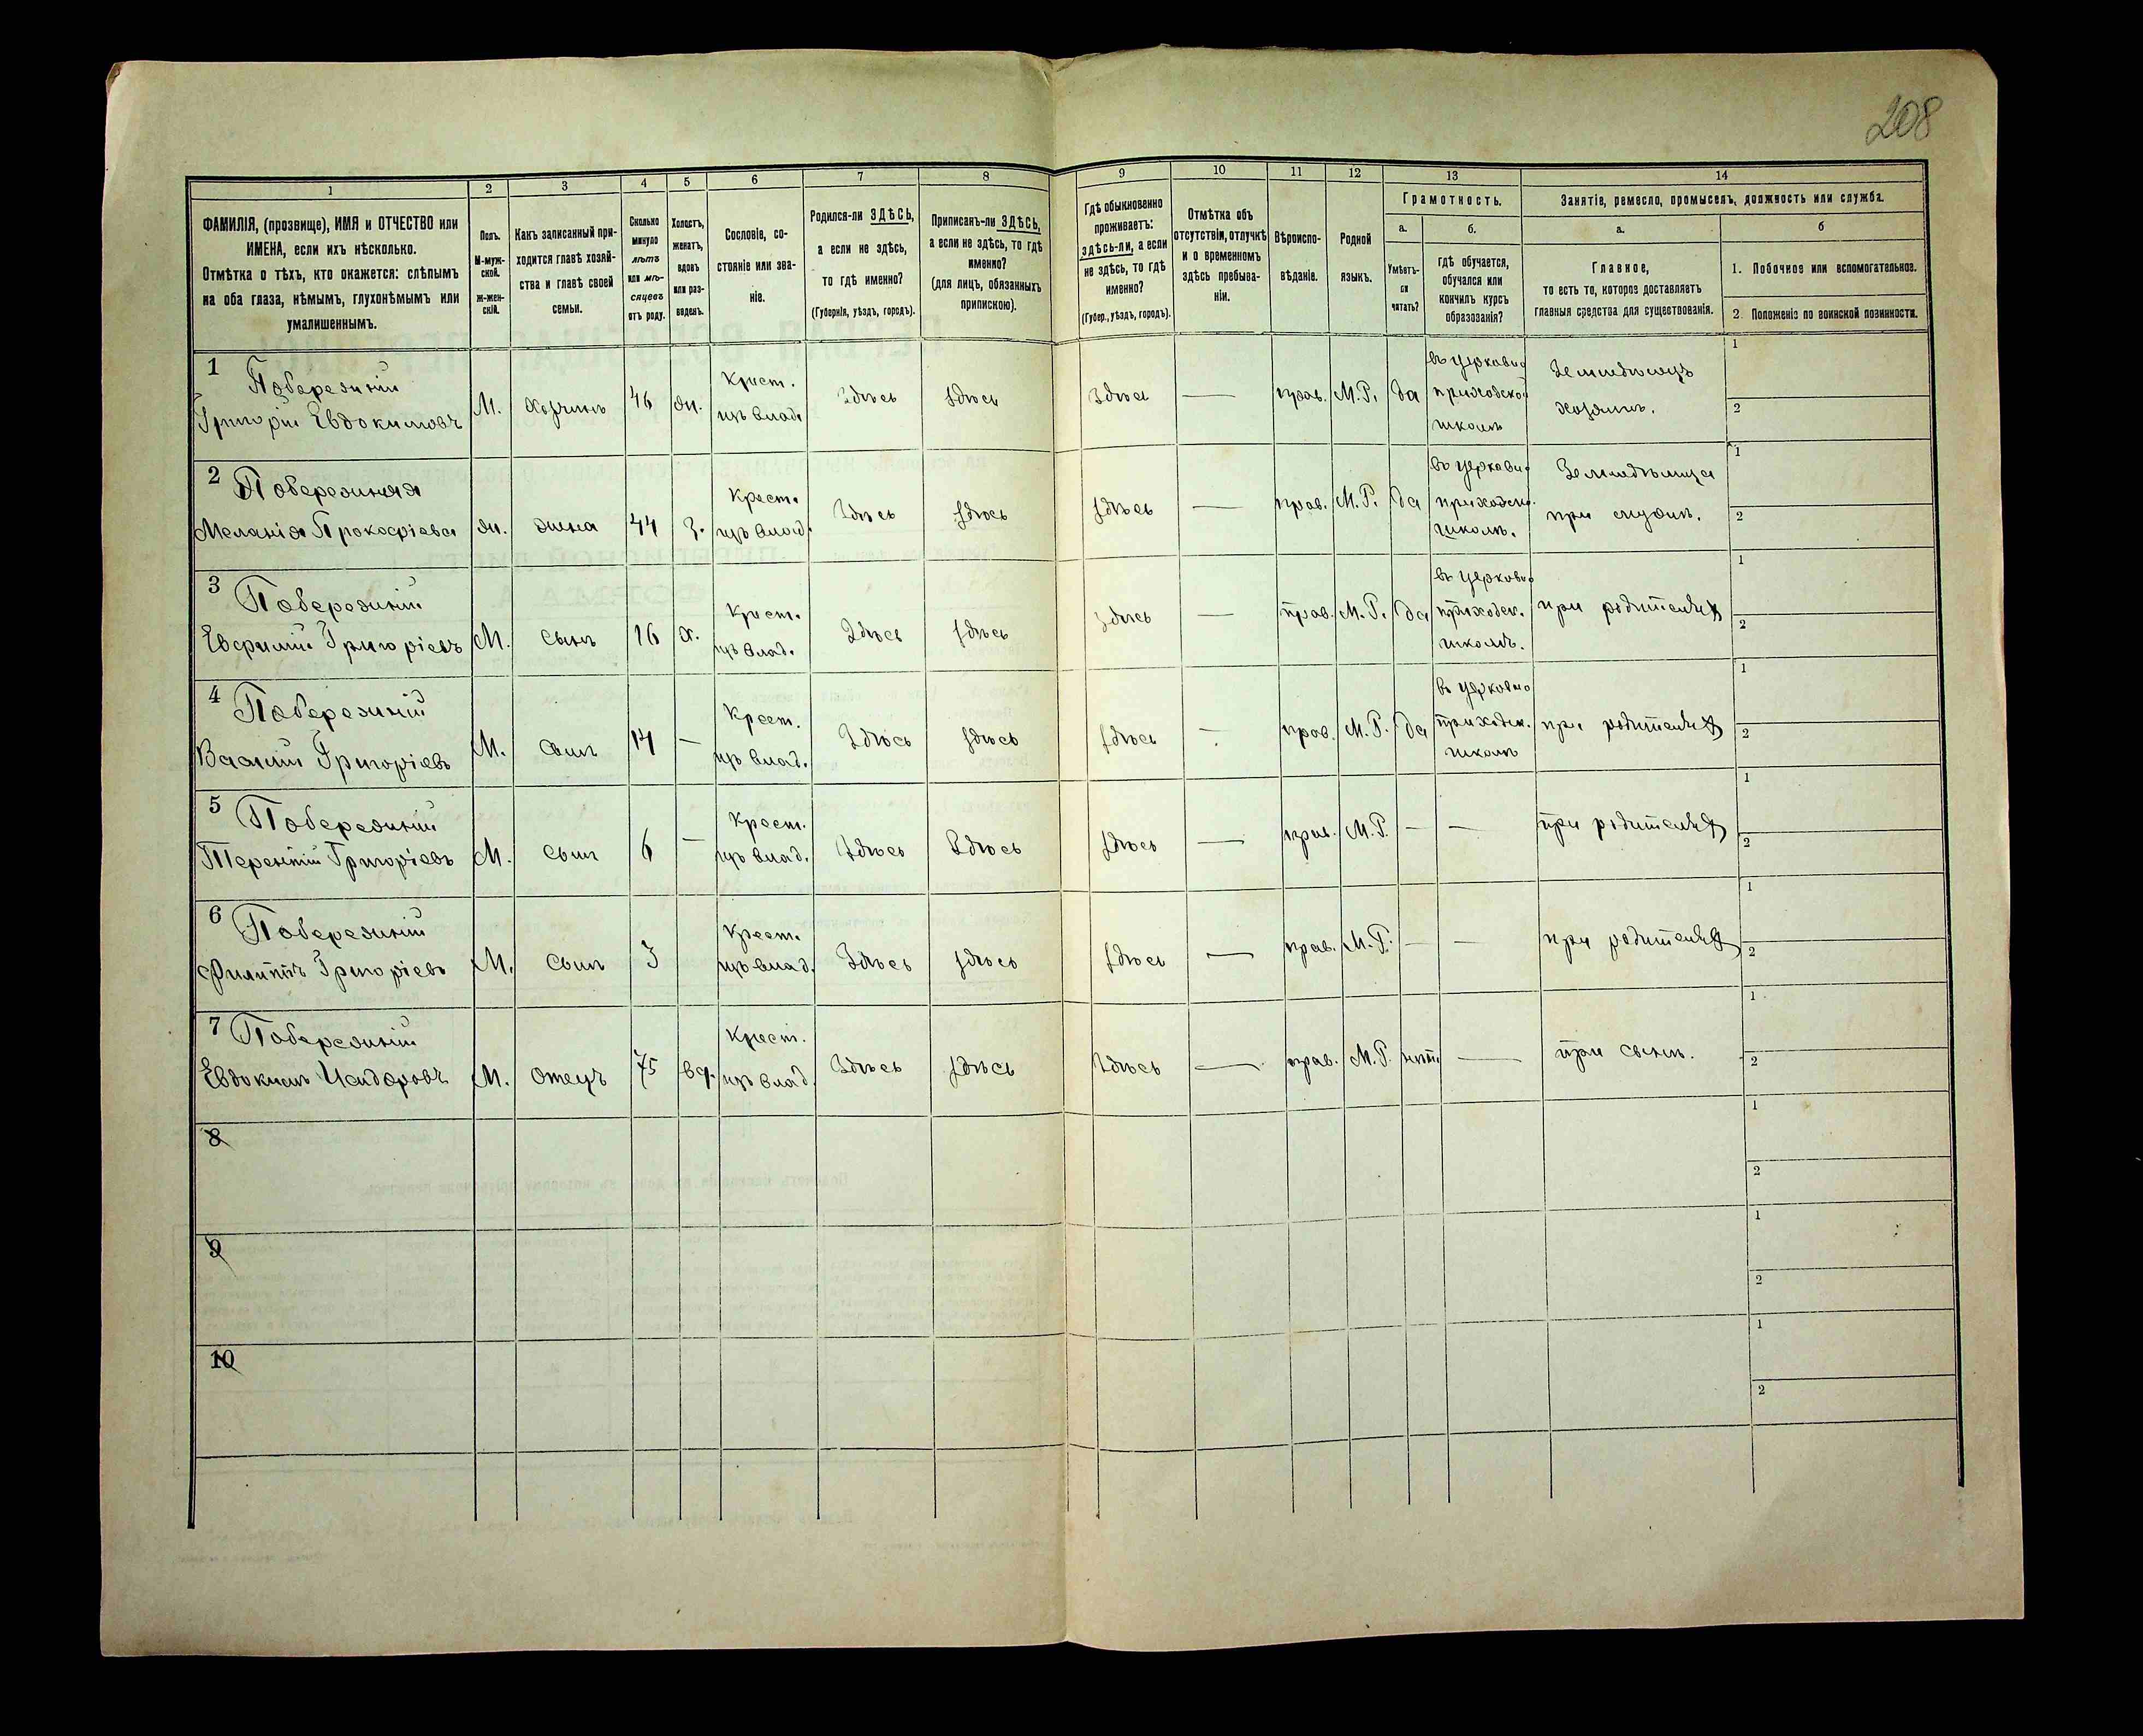 208
1
2
3
4
5
6
7
8
9
10
11
12
13
14
ФАМИЛІЯ, (прозвище), ИМЯ и ОТЧЕСТВО или
ИМЕНА, если ихъ нѣсколько.
Отмѣтка о тѣхъ, кто окажется: слѣпымъ
на оба глаза, нѣмымъ, глухонѣмымъ или
умалишеннымъ.
Полъ.
М-муж-
ской.
ж-жен-
скій.
Какъ записанный при-
ходится главѣ хозяй-
ства и главѣ своей
семьи.
Сколько
минуло
лѣтъ
или мѣ-
сяцевъ
отъ роду.
Холостъ,
женатъ,
вдовъ
или раз-
веденъ.
Сословіе, со-
стояніе или зва-
ніе.
Родился-ли ЗДѢСЬ,
а если не здѣсь,
то гдѣ именно?
(Губернія, уѣздъ, городъ).
Приписанъ-ли ЗДѢСЬ,
а если не здѣсь, то гдѣ
именно?
(для лицъ, обязанныхъ
припискою).
Гдѣ обыкновенно
проживаетъ:
здѣсь-ли, а если
не здѣсь, то гдѣ
именно?
(Губер., уѣздъ, городъ).
Отмѣтка объ
отсутствіи, отлучкѣ
и о временномъ
здѣсь пребыва-
ніи.
Вѣроиспо-
вѣданіе.
Родной
языкъ.
Грамотность.
а.
Умѣетъ-
ли
читать?
б.
гдѣ обучается,
обучался или
кончилъ курсъ
образованія?
Занятіе, ремесло, промыселъ, должность или служба.
а.
Главное,
то есть то, которое доставляетъ
главныя средства для существованія.
б
1. Побочное или вспомогательное.
2. Положеніе по воинской повинности.
1 Поберезний
Григорій Евдокимовъ
М.
Хозяинъ
46
жн.
Крест.
изъ влад.
Здѣсь
здѣсь
Здѣсь
—
прав.
М.Р.
да
въ церковно
приходской
школѣ
Земледѣлецъ
хозяинъ.
1
2
2 Поберезнияя
Меланія Прокофіева
жн.
жена
44
з.
Крест.
изъ влад.
Здѣсь
здѣсь
здѣсь
—
прав.
М.Р.
да
въ церковно
приходско.
школѣ.
Земледѣлица
при мужѣ.
1
2
3 Поберезний
Евфимій Григоріевъ
М.
Сынъ
16
х.
Крест.
изъ влад.
Здѣсь
здѣсь
здѣсь
—
прав.
М.Р.
да
въ церковно
приходск.
школѣ.
при родителях
1
2
4 Поберезний
Василій Григоріевъ
М.
Сынъ
14
—
Крест.
изъ влад.
Здѣсь
здѣсь
здѣсь
—
прав.
М.Р.
да
въ церковно
приходск.
школѣ
при родителях
1
2
5 Поберезний
Терентій Григоріевъ
М.
Сынъ
6
—
Крест.
изъ влад.
Здѣсь
Здѣсь
здѣсь
—
прав.
М.Р.
—
—
при родителях
1
2
6 Поберезний
Филиппъ Григоріевъ
М.
Сынъ
3
Крест.
изъ влад.
Здѣсь
здѣсь
здѣсь
—
прав.
М.Р.
—
—
при родителях
1
2
7 Поберезний
Евдокимъ Исидоровъ
М.
Отецъ
75
вд.
Крест.
изъ влад.
Здѣсь
здѣсь
Здѣсь
—
прав.
М.Р.
нѣтъ
—
при сынѣ.
1
2
8
1
2
9
1
2
10
1
2